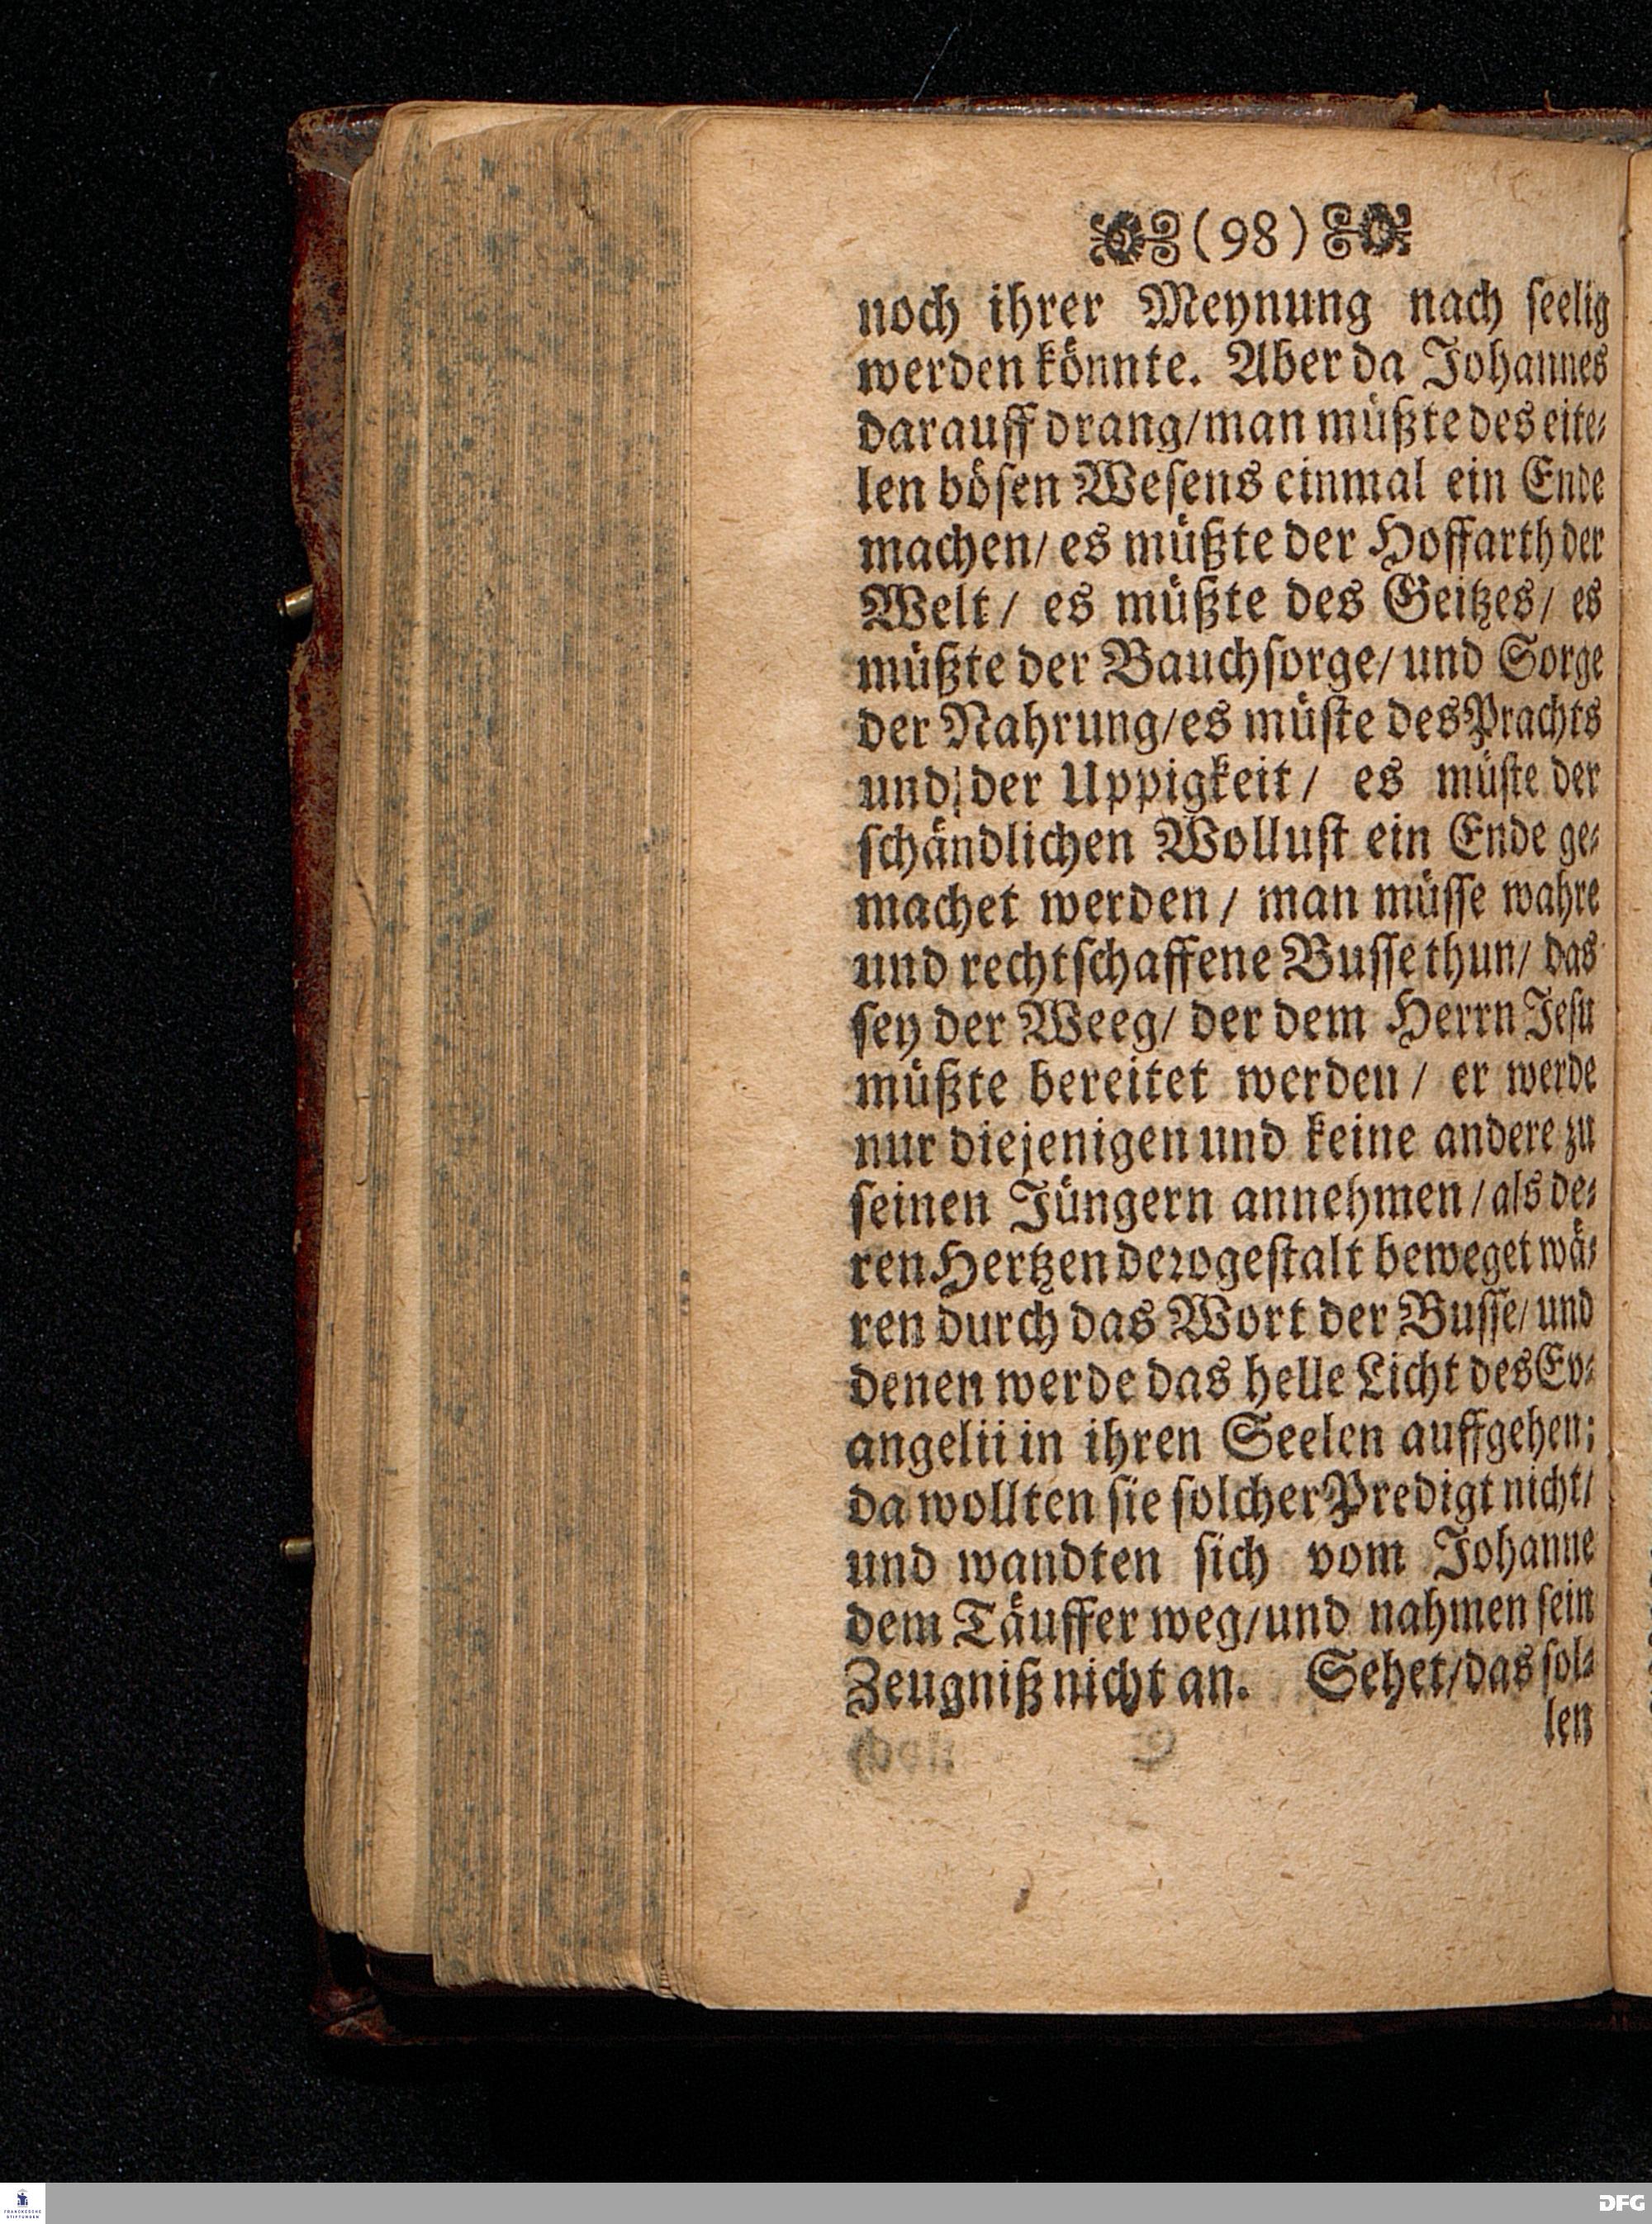 (98)
noch ihrer Meynung nach ſeelig
werden könnte. Aber da Johannes
darauff drang/man müßte des eite⸗
len böſen Weſens einmal ein Ende
machen/ es müßte der Hoffarth der
Welt/ es müßte des Geitzes/ es
müßte der Bauchſorge/ und Sorge
der Nahrung/es müſte des Prachts
und der Uppigkeit/ es müſte der
ſchändlichen Wolluſt ein Ende ge⸗
machet werden/ man müſſe wahre
und rechtſchaffene Buſſe thun/ das
ſey der Weeg/ der dem Herrn Jeſu
müßte bereitet werden/ er werde
nur diejenigen und keine andere zu
ſeinen Jüngern annehmen/als de⸗
ren Hertzen derogeſtalt beweget wä⸗
ren durch das Wort der Buſſe/ und
denen werde das helle Licht des Ev⸗
angelii in ihren Seelen auffgehen;
da wollten ſie ſolcher Predigt nicht/
und wandten ſich vom Johanne
dem Täuffer weg/und nahmen ſein
Zeugniß nicht an. Sehet/das ſol⸗
len
FRANCKESCHE
STIFTUNGEN
DFG